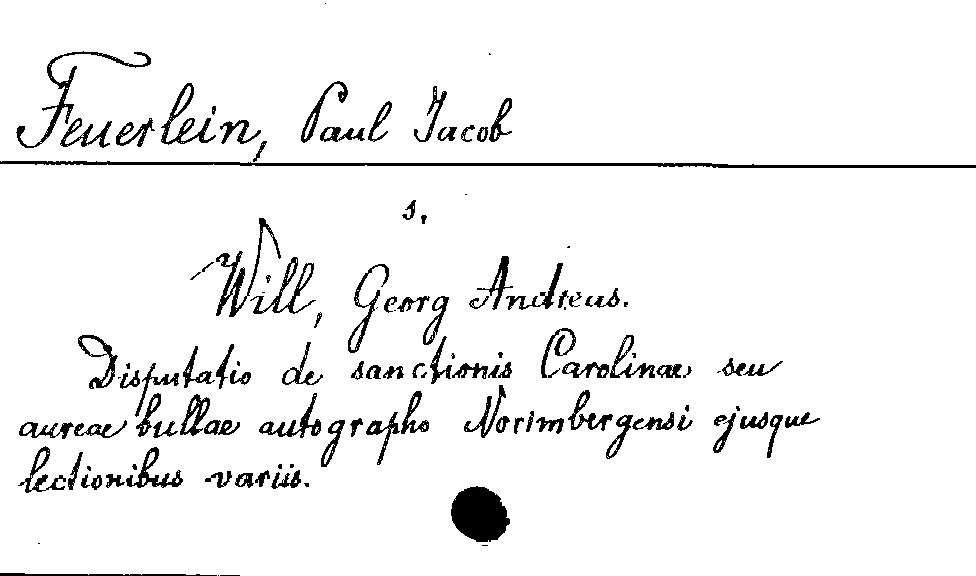 Feuerlein, Paul Jacob
s.
Will, Georg Andreas.
Disputatio de sanctionis Carolinae seu
aureae bullae autographo Norimbergensi ejusque
lectionibus variis.